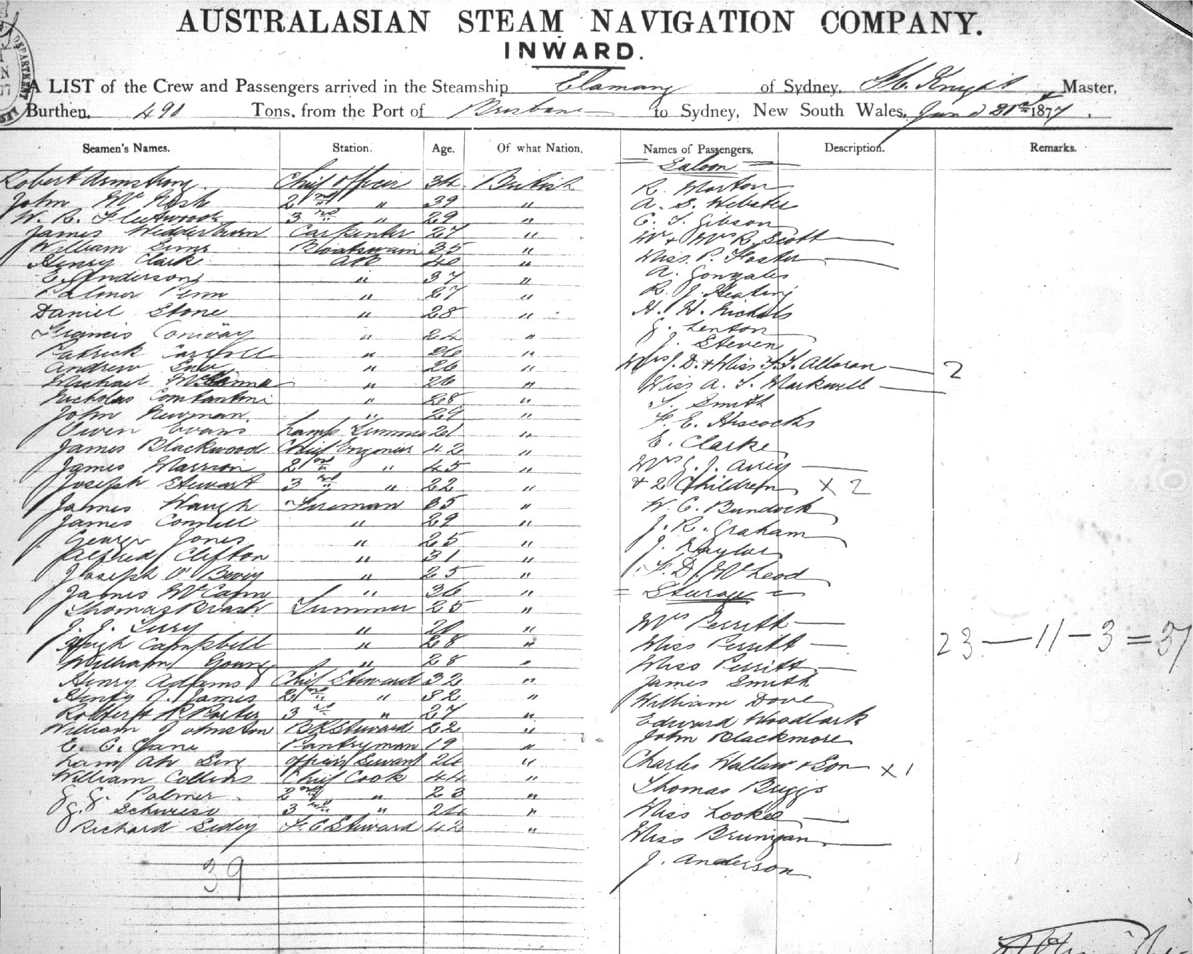 AUSTRALASIAN STEAM NAVIGATION COMPANY.
INWARD.
A LIST of the Crew and Passengers arrived in the Steamship of Sydney, Knight Master,
Burthen, 491 Tons, from the Port of Brisbane to Sydney, New South Wales, June 21st 1877.
Seamen's Names. Station. Age. Of what Nation.
Robert Armstrong Chief Officer 34 British
John McNish 2nd " 39 "
W. R. Fleetwood 3rd " 29 "
James Wedderburn Carpenter 27 "
William Boatswain 35 "
Henry Clark AB 40 "
E. Anderson " 37 "
Penn " 27 "
Daniel Stone " 28 "
Francis Conway " 24 "
Patrick " 26 "
Andrew " 26 "
Michael " 26 "
Nicholas " 28 "
John Newman " 29 "
Owen Evans Lamp Trimmer 21 "
James Blackwood Chief Engineer 42 "
James Marrion 2nd " 45 "
Joseph Stewart 3rd " 22 "
James Waugh Fireman 35 "
James " 29 "
George Jones " 25 "
Alfred Clifton " 31 "
Joseph " 25 "
James McCann " 36 "
Thomas Brash Trimmer 25 "
J. J. " 20 "
Hugh Campbell " 28 "
William Young " 28 "
Henry Adams Chief Steward 32 "
Henry J. James 2nd " 32 "
Robert R. Porter 3rd " 27 "
William Johnston BK Steward 22 "
E. C. Jane Pantryman 19 "
Lam Ah Sing Officers Servant 24 "
William Collins Chief Cook 44 "
J. J. Palmer 2nd " 23 "
J. 3rd " 24 "
Richard Sidey F. C. Steward 42 "
39
Names of Passengers. Description. Remarks.
= Saloon =
R. Morton
A. S. Webster
C. T. Gibson
Mr & Mrs R. Scott
Miss P. Foster
A. Gonzales
R. J. Keating
H. W. Nichols
J. Lenton
J. Steven
Mrs J. D. & Miss F. J. Alloran 2
Miss A. T. Markwell
T. Smith
F. E. Hiscocks
E. Clarke
Mrs E. J. Airey
& 2 Children x 2
W. C. Bundock
J. R. Graham
J. Naylor
F. D. McLeod
= Steerage =
Mrs Perritt
Miss Perritt
Miss Perritt
James Smith
William Dove
Edward Woodlark
John Blackmore
Charles Wallaw & Son x 1
Thomas Briggs
Miss Lookes
Miss Brunigan
J. Anderson
23 — 11 - 3 = 37